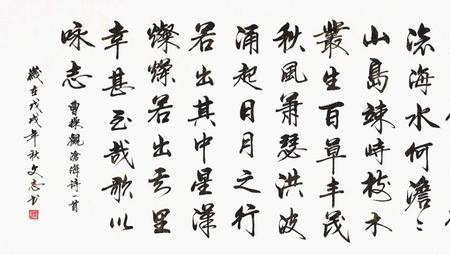 滄海水何澹々
山島竦峙樹木
叢生百草丰茂
秋風蕭瑟洪波
涌起日月之行
若出其中星漢
燦爛若出其里
幸甚至哉歌以
咏志
曹操觀滄海詩一首
歲在戊戌年秋文志书